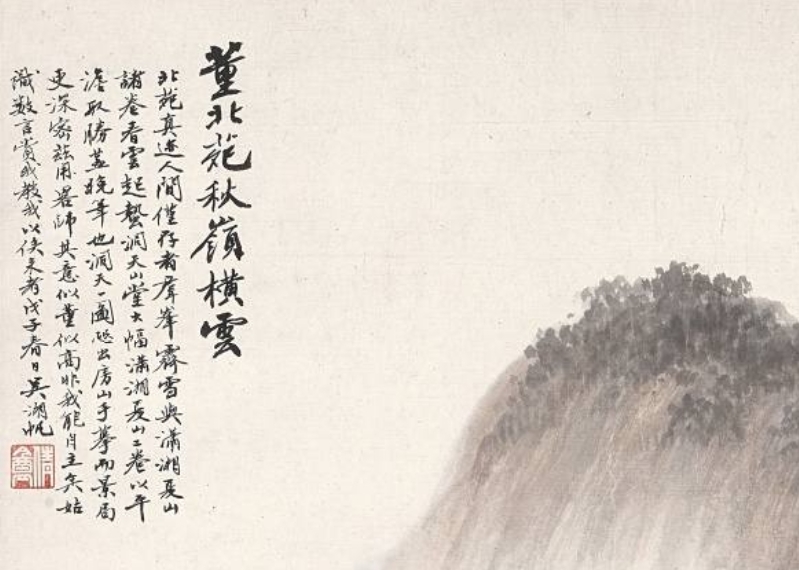 董北苑秋嶺橫雲
北苑真迹人間僅存者羣峯霽雪與瀟湘夏山
諸卷看雲起蟄洞天山堂大幅瀟湘夏山二卷以平
澹取勝蓋晚筆也洞天一圖或出房山手摹而景局
更深密茲用略師其意似董似高非我能自主矣姑
識數言賞我教我以俟來者戊子春日吳湖帆